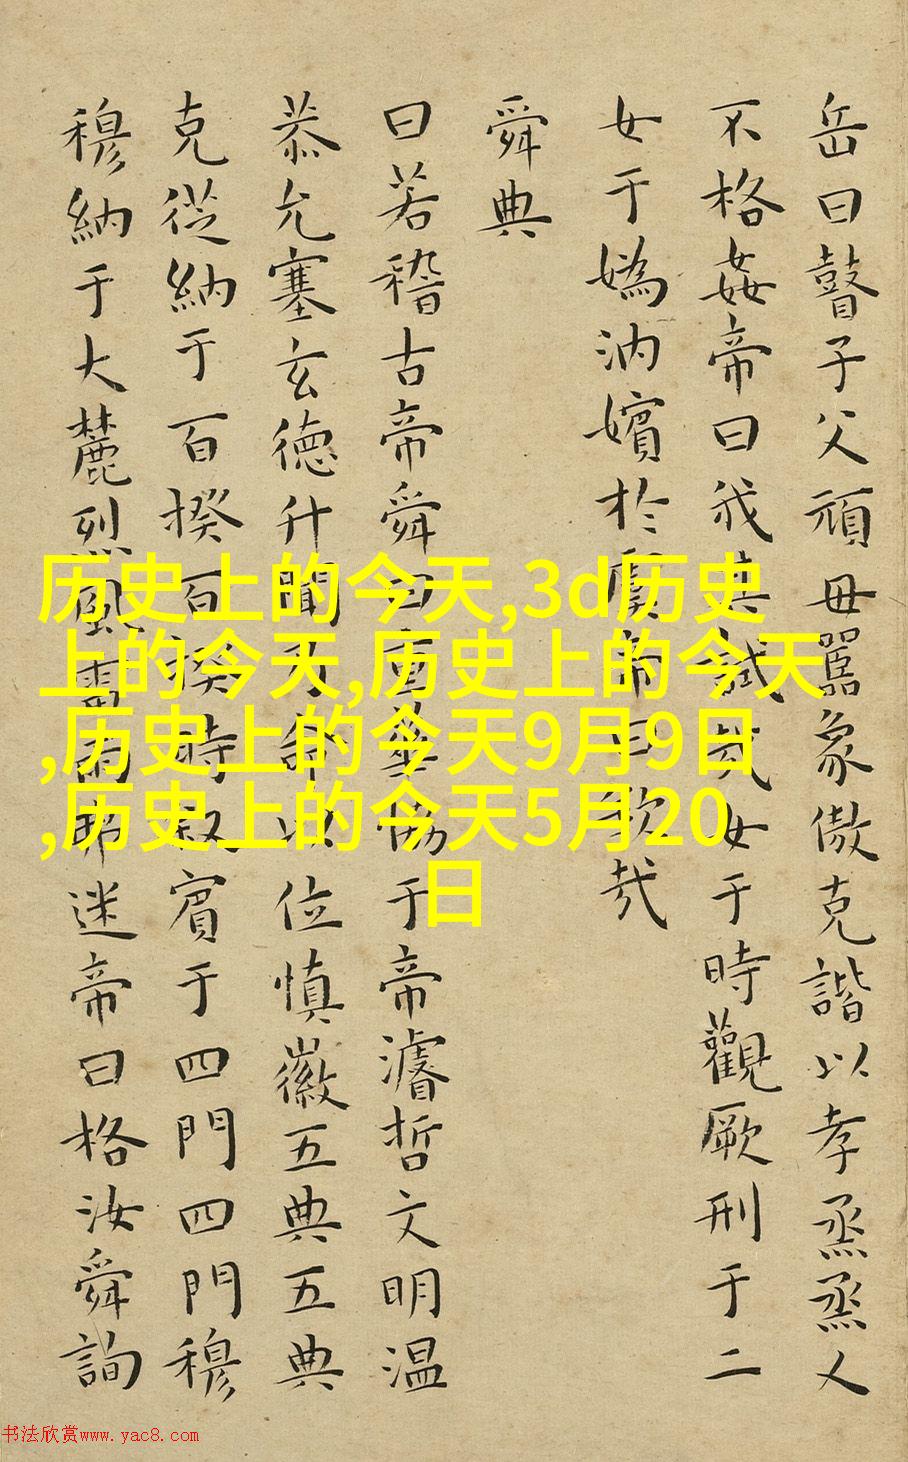 岳曰瞽子父頑母嚚象傲克諧以孝烝烝乂
不格姦帝曰我其試哉女于時觀厥刑于二
女于媯汭嬪於虞帝曰欽哉
舜典
曰若稽古帝舜曰重華協于帝濬哲文明温
恭允塞玄德升聞乃命以位慎徽五典五典
克從納于百揆百揆時敘賓于四門四門穆
穆納于大麓烈風雷雨弗迷帝曰格汝舜詢
历史上的今天,3d历史
上的今天,历史上的今天
,历史上的今天9月9日
,历史上的今天5月20
日
书法欣赏www.yac8.com